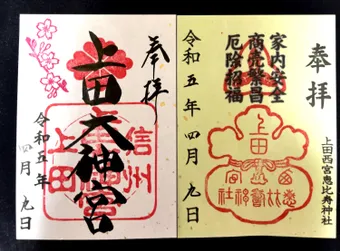 奉拝
上田大神宮
信州
上田
令和五年四月九日
奉拝
家内安全
商売繁昌
厄除招福
令和五年四月九日
上田西宮恵比寿神社
上田